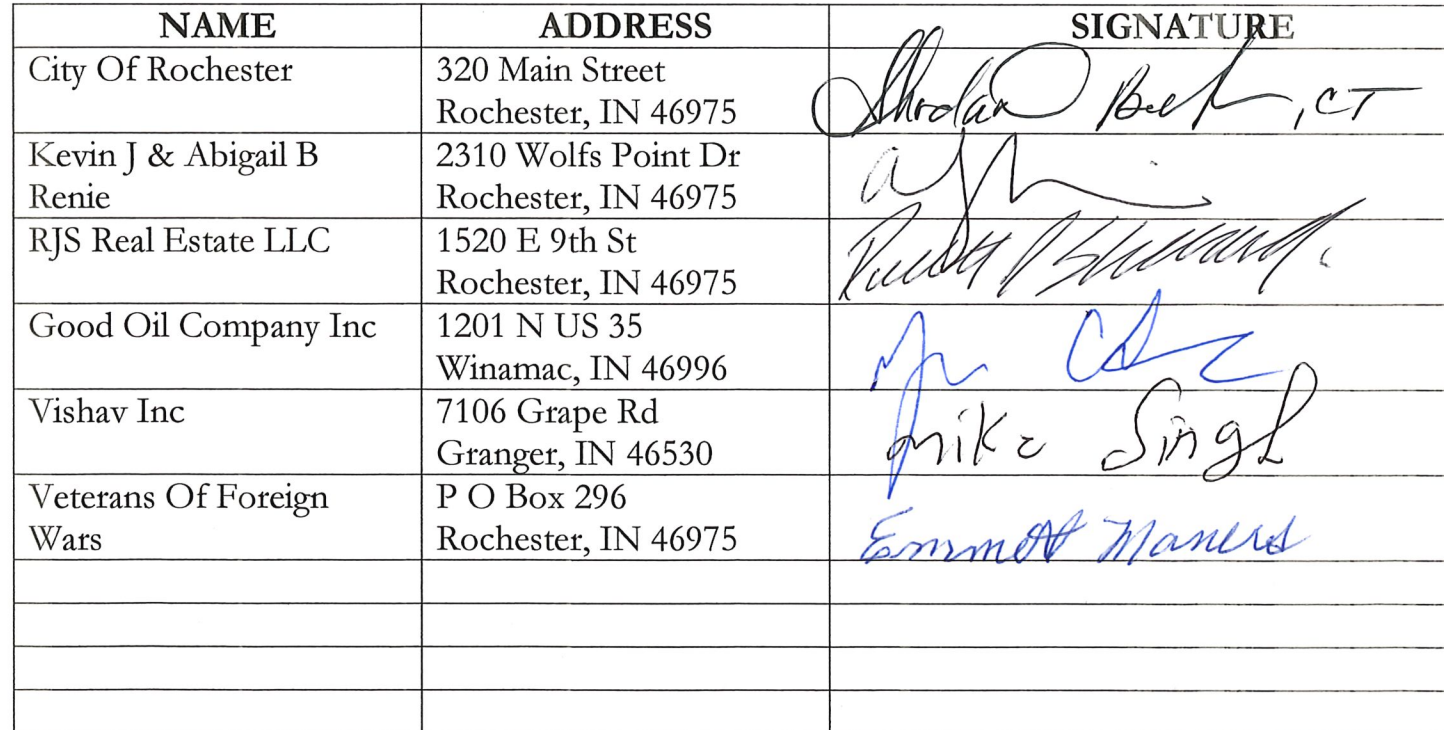 NAME ADDRESS SIGNATURE
City Of Rochester 320 Main Street
Rochester, IN 46975 , CT
Kevin J & Abigail B 2310 Wolfs Point Dr
Renie Rochester, IN 46975
RJS Real Estate LLC 1520 E 9th St
Rochester, IN 46975
Good Oil Company Inc 1201 N US 35
Winamac, IN 46996
Vishav Inc 7106 Grape Rd
Granger, IN 46530 Mike Singh
Veterans Of Foreign P O Box 296
Wars Rochester, IN 46975 Emmett Maners